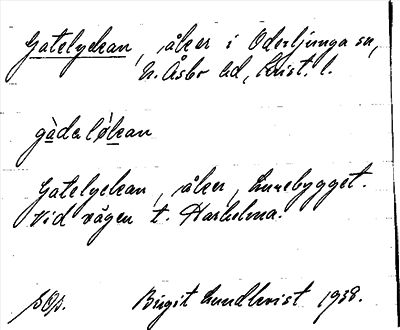 Gatelyckan, åker i Oderljunga sn,
N. Åsbo hd, Krist. l.
gàdelỳkan
Gatelyckan, åker, Lunebygget.
Vid vägen t. Harhelma.
Birgit Lundkvist 1938.